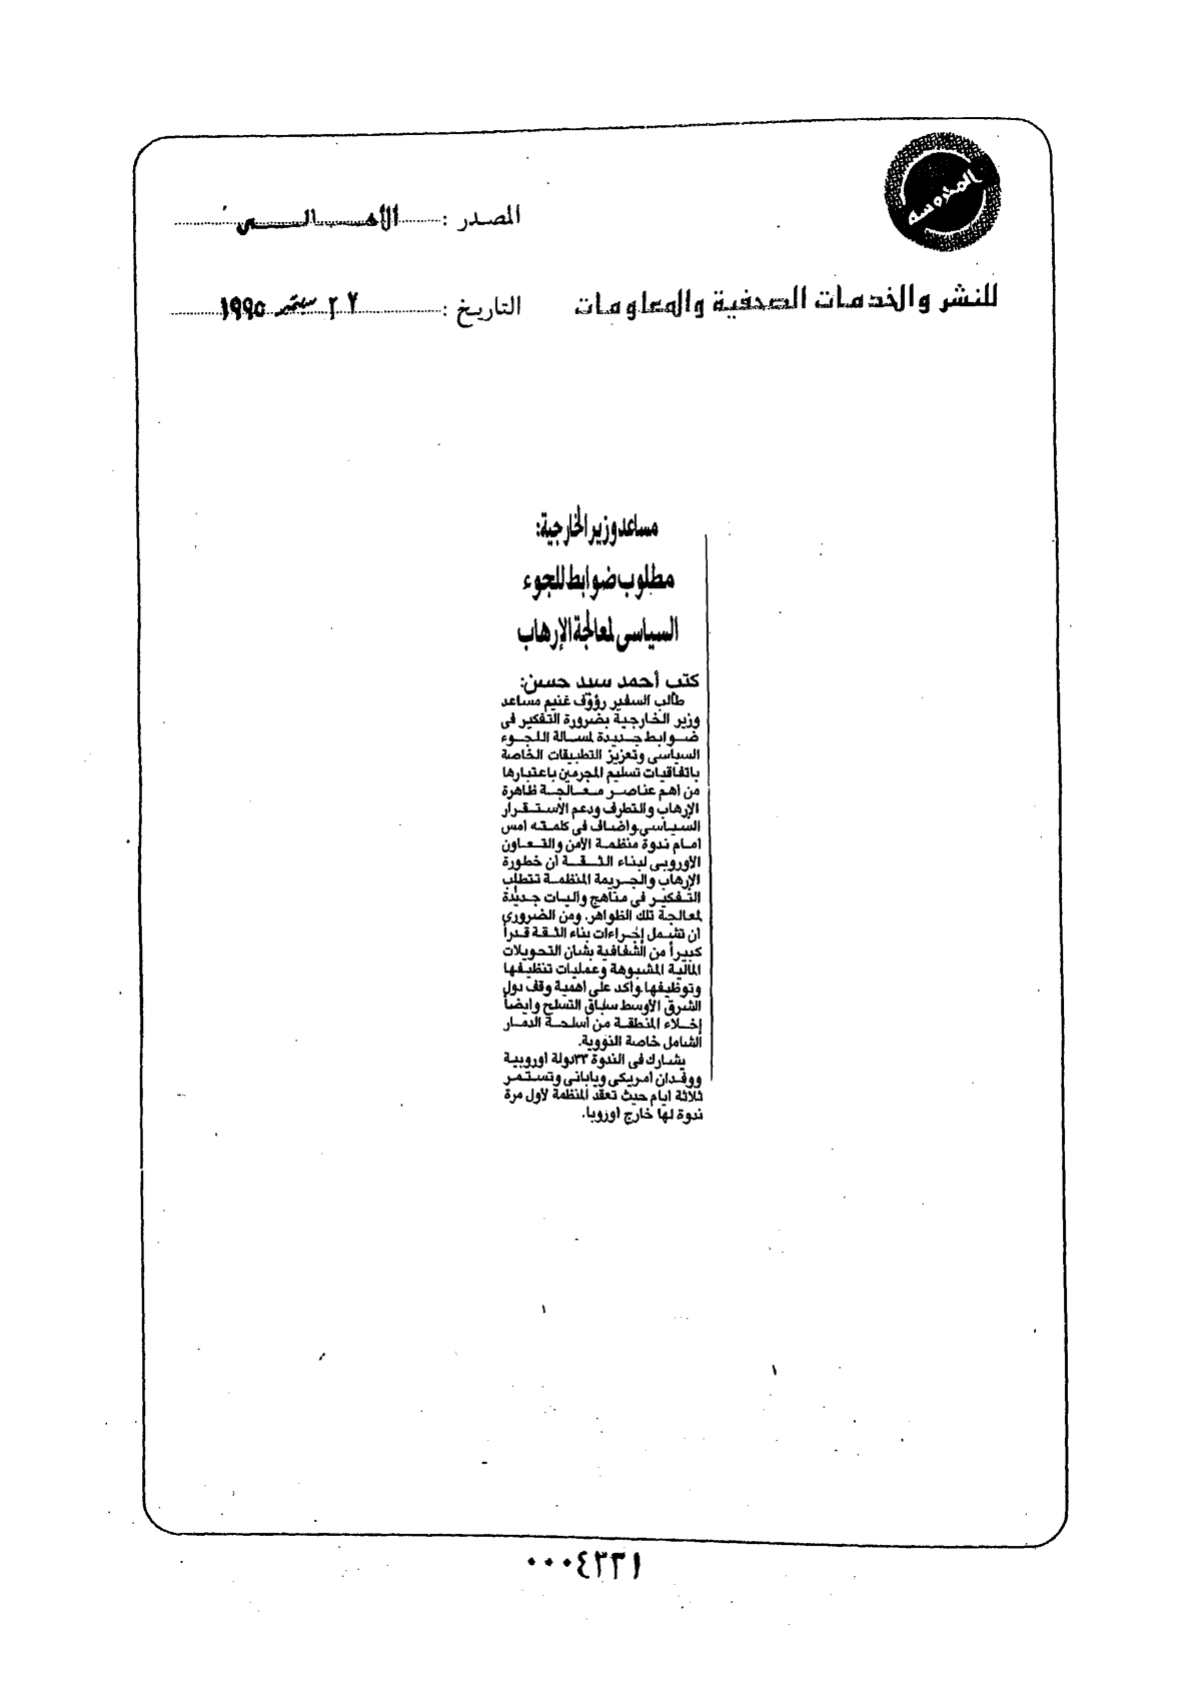 المحروسة
المصدر : الأهـــالـــى
للنشر والخدمات الصحفية والمعلومات
التاريخ : ٢٧ سبتمبر ١٩٩٥
مساعد وزير الخارجية:
مطلوب ضوابط للجوء
السياسى لمعالجة الإرهاب
كتب أحمد سيد حسن:
طالب السفير رؤوف غنيم مساعد
وزير الخارجية بضرورة التفكير فى
ضوابط جديدة لمسألة اللجوء
السياسى وتعزيز التطبيقات الخاصة
باتفاقيات تسليم المجرمين باعتبارها
من أهم عناصر معالجة ظاهرة
الإرهاب والتطرف ودعم الاستقرار
السياسى وأضاف فى كلمته أمس
أمام ندوة منظمة الأمن والتعاون
الأوروبى لبناء الثقة أن خطورة
الإرهاب والجريمة المنظمة تتطلب
التفكير فى مناهج وآليات جديدة
لمعالجة تلك الظواهر. ومن الضرورى
أن تشمل إجراءات بناء الثقة قدراً
كبيراً من الشفافية بشأن التحويلات
المالية المشبوهة وعمليات تنظيفها
وتوظيفها وأكد على أهمية وقف دول
الشرق الأوسط سباق التسلح وأيضاً
إخلاء المنطقة من أسلحة الدمار
الشامل خاصة النووية.
يشارك فى الندوة ٣٣ دولة أوروبية
ووفدان أمريكى ويابانى وتستمر
ثلاثة أيام حيث تعقد المنظمة لأول مرة
ندوة لها خارج أوروبا.